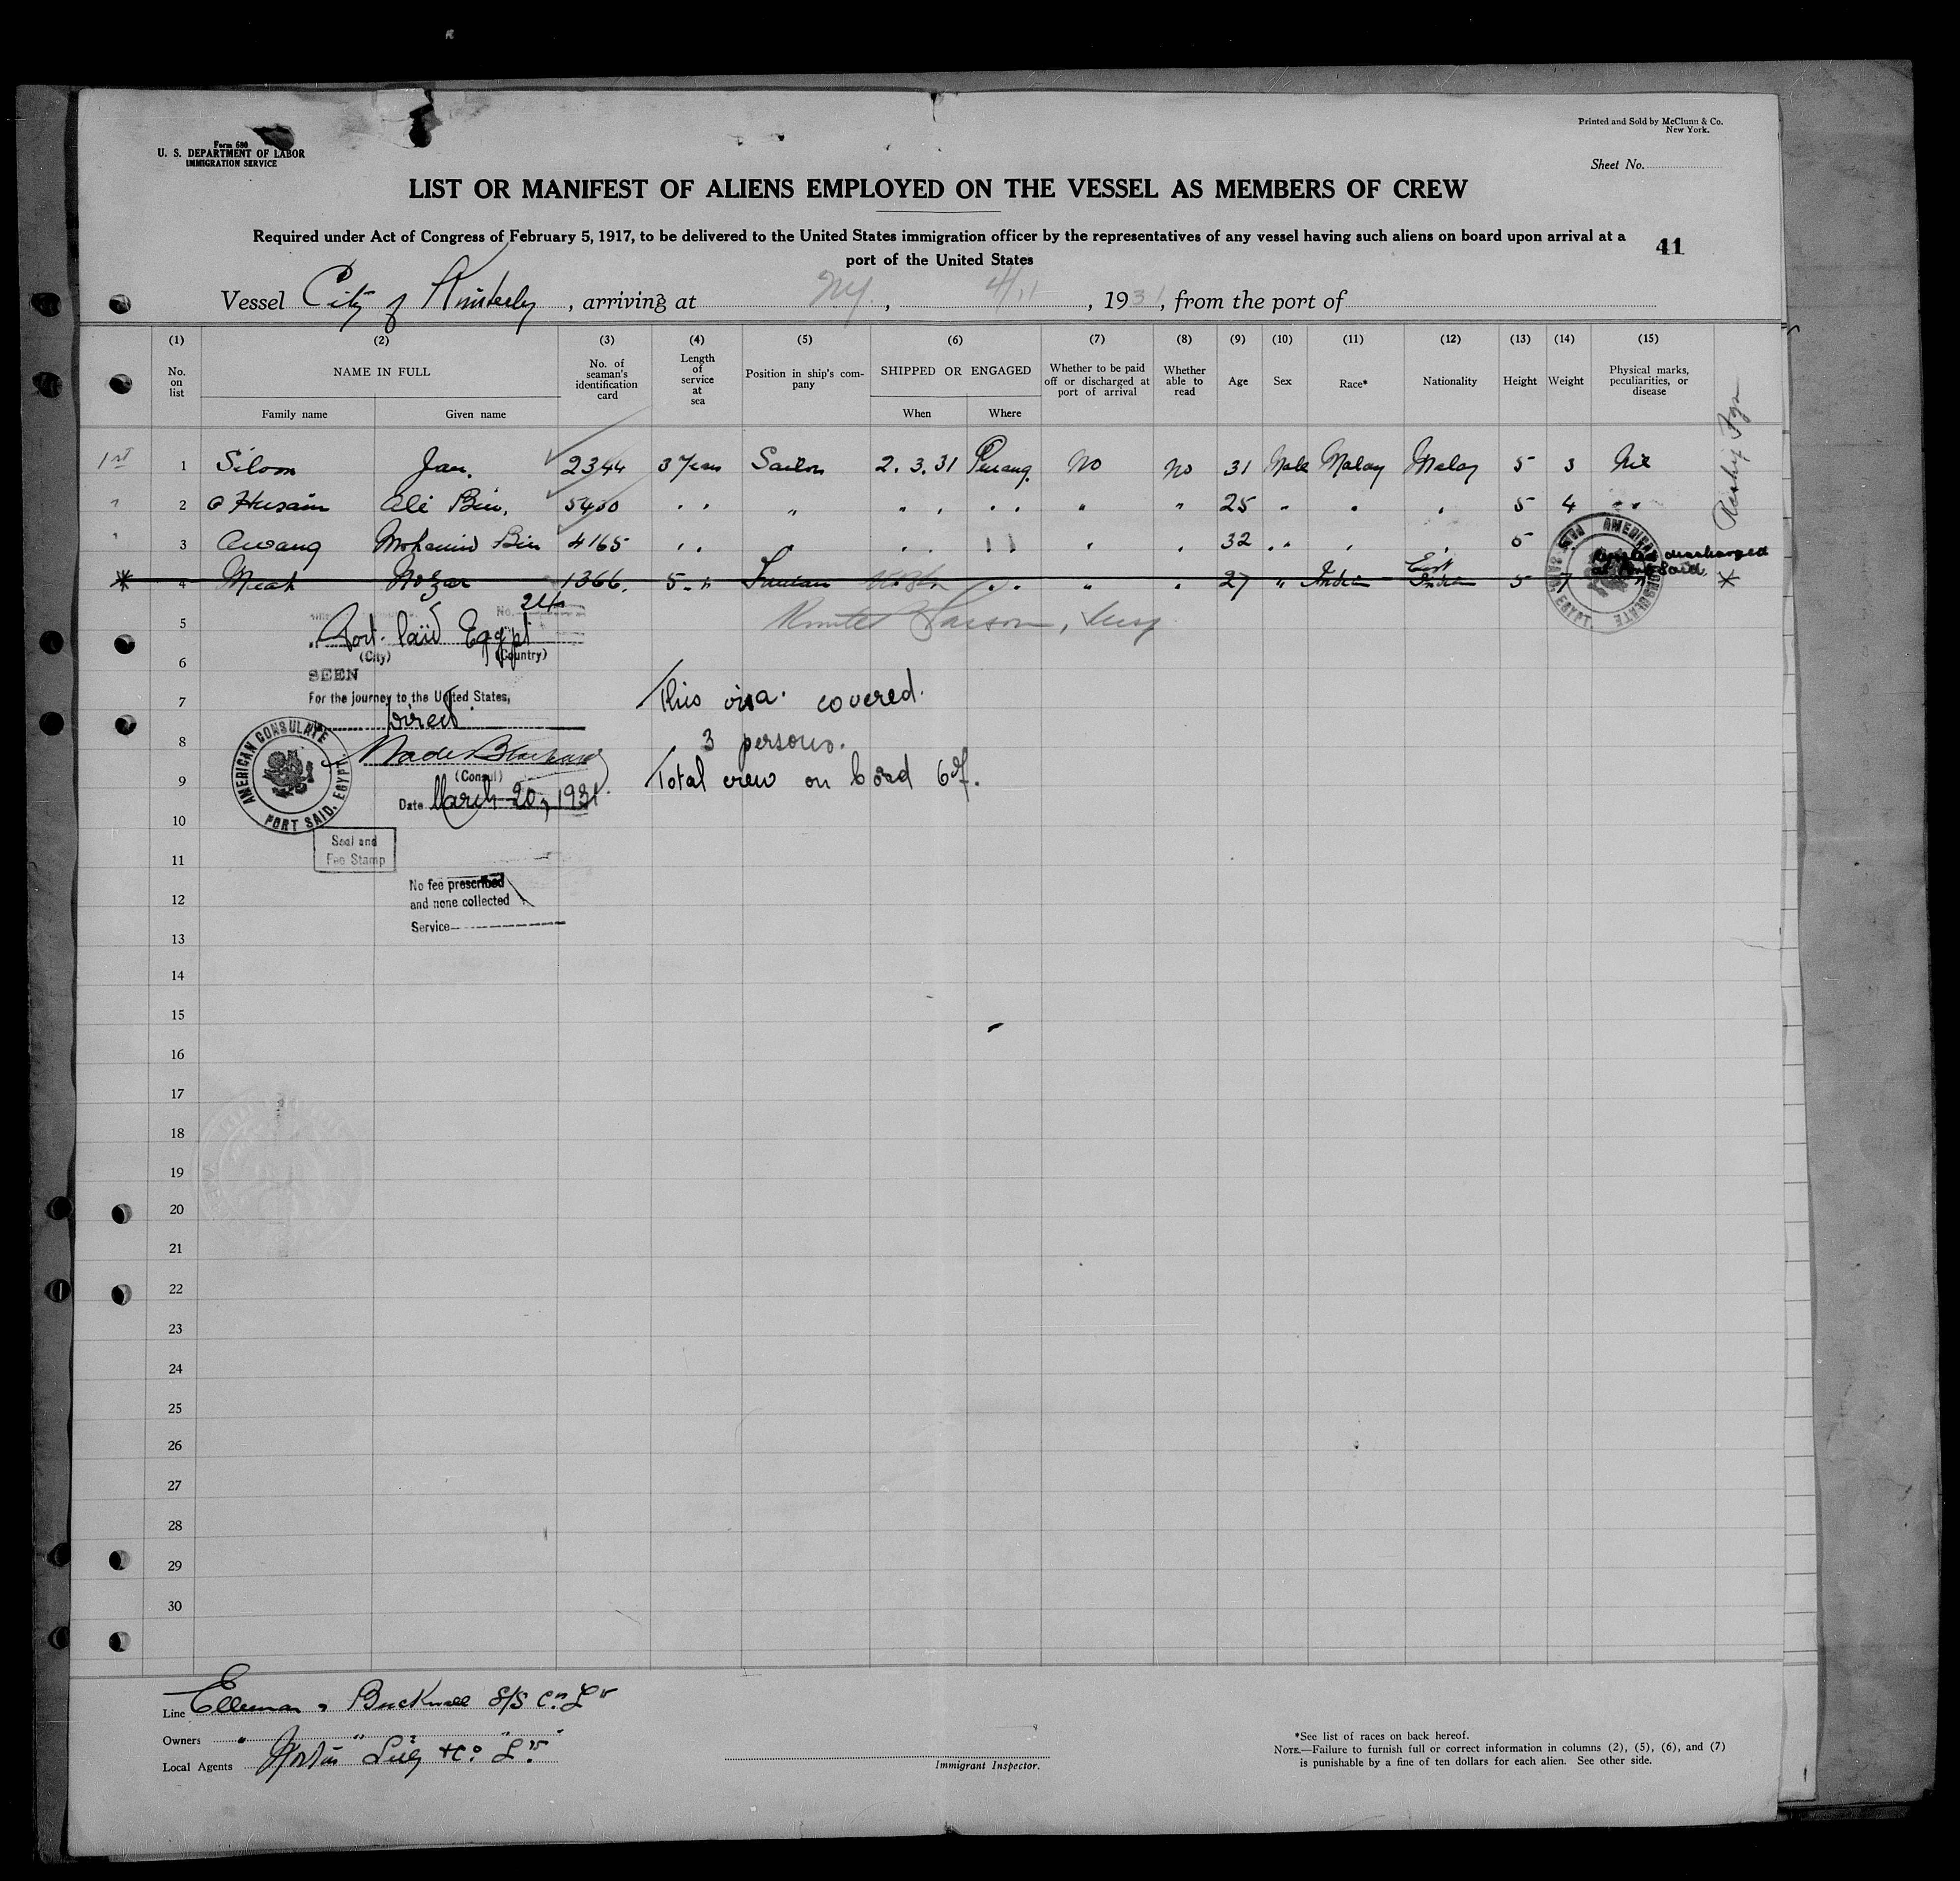 Form 680
U. S. DEPARTMENT OF LABOR
IMMIGRATION SERVICE
Printed and Sold by McClunn & Co.
New York.
Sheet No.
LIST OR MANIFEST OF ALIENS EMPLOYED ON THE VESSEL AS MEMBERS OF CREW
Required under Act of Congress of February 5, 1917, to be delivered to the United States immigration officer by the representatives of any vessel having such aliens on board upon arrival at a
port of the United States
41
Vessel City of Kimberly, arriving at NY., 4/11, 1931, from the port of
(1) (2) (3) (4) (5) (6) (7) (8) (9) (10) (11) (12) (13) (14) (15)
No. on list NAME IN FULL No. of seaman's identification card Length of service at sea Position in ship's company SHIPPED OR ENGAGED Whether to be paid off or discharged at port of arrival Whether able to read Age Sex Race* Nationality Height Weight Physical marks, peculiarities, or disease
Family name Given name When Where
1st 1 Siloon Jan. 2344 3 Years Sailor 2. 3. 31 Penang. No No 31 Male Malay Malay 5 3 Nil
" 2 Husain Ali Bin. 5400 " " " " " " " " " 25 " " " 5 4 " "
" 3 Awang Mohamid Bin 4165 " " " " " " " " " 32 " " " " 5
discharged
* 4 Meah 1366. 5 " " " " " 27 " Indian East Indian 5 7 " *
Said
5
No. 24
Port. Said Egypt
(City) (Country)
6
SEEN
For the journey to the United States,
7 This visa. covered.
Direct.
8 3 persons.
(Consul)
9 Total crew on board 67.
Date March 20, 1931.
AMERICAN CONSULATE
PORT SAID, EGYPT.
AMERICAN CONSULATE
PORT SAID, EGYPT.
10
Seal and
Fee Stamp
11
No fee prescribed
and none collected
12
Service
13
14
15
16
17
18
19
20
21
22
23
24
25
26
27
28
29
30
Line Ellerman & Bucknall S/S Co. Ld
Owners " " " "
Local Agents Norton Lilly & Co. Ld.
Immigrant Inspector.
*See list of races on back hereof.
NOTE.—Failure to furnish full or correct information in columns (2), (5), (6), and (7)
is punishable by a fine of ten dollars for each alien. See other side.